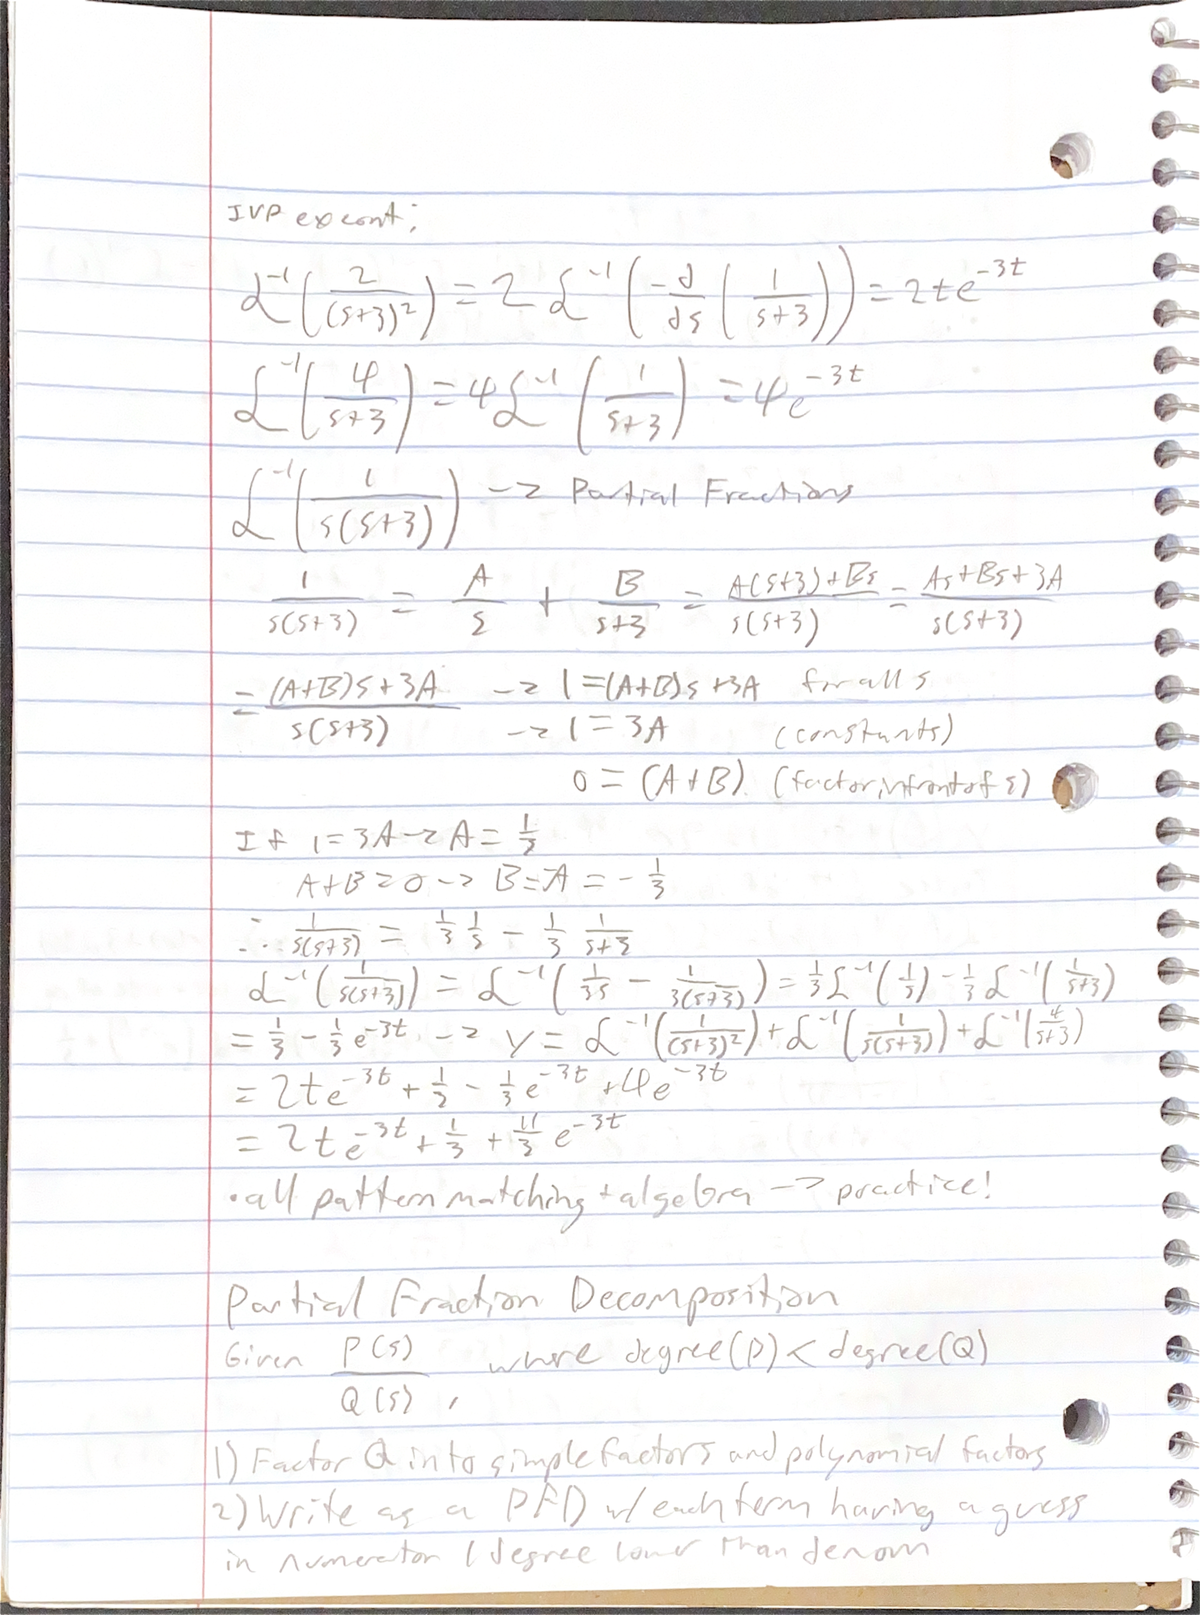 IVP ex cont;
ℒ⁻¹(2/(s+3)²) = 2ℒ⁻¹(-d/ds(1/(s+3))) = 2te^-3t
ℒ⁻¹(4/(s+3)) = 4ℒ⁻¹(1/(s+3)) = 4e^-3t
ℒ⁻¹(1/(s(s+3))) -> Partial Fractions
1/(s(s+3)) = A/s + B/(s+3) = (A(s+3)+Bs)/(s(s+3)) = (As+Bs+3A)/(s(s+3))
= ((A+B)s+3A)/(s(s+3)) -> 1=(A+B)s+3A for all s
-> 1=3A (constants)
0=(A+B). (factor in front of s)
If 1=3A -> A=1/3
A+B=0 -> B=-A=-1/3
∴ 1/(s(s+3)) = 1/3 1/s - 1/3 1/(s+3)
ℒ⁻¹(1/(s(s+3))) = ℒ⁻¹(1/3s - 1/(3(s+3))) = 1/3 ℒ⁻¹(1/s) - 1/3 ℒ⁻¹(1/(s+3))
= 1/3 - 1/3 e^-3t. -> y = ℒ⁻¹(1/(s+3)²) + ℒ⁻¹(1/(s(s+3))) + ℒ⁻¹(4/(s+3))
= 2te^-3t + 1/3 - 1/3 e^-3t + 4e^-3t
= 2te^-3t + 1/3 + 11/3 e^-3t
• all pattern matching + algebra -> practice!
Partial Fraction Decomposition
Given P(s)/Q(s), where degree(P) < degree(Q)
1) Factor Q into simple factors and polynomial factors
2) Write as a PFD w/ each term having a guess
in numerator 1 degree lower than denom